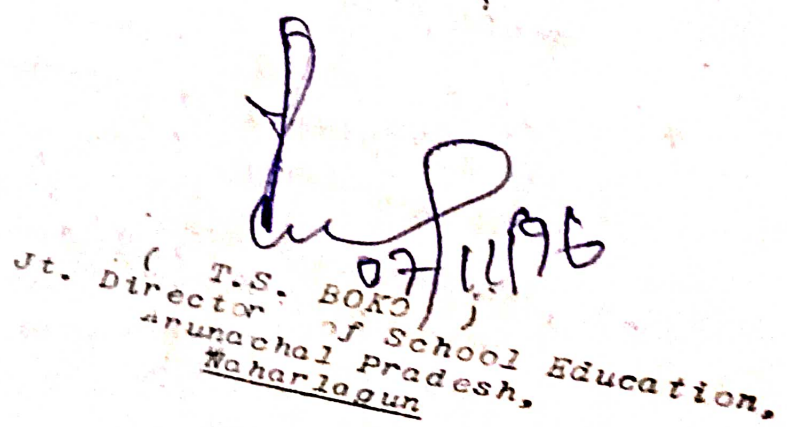 07/11/96
( T.S. BOKO )
Jt. Director of School Education,
Arunachal Pradesh,
Naharlagun